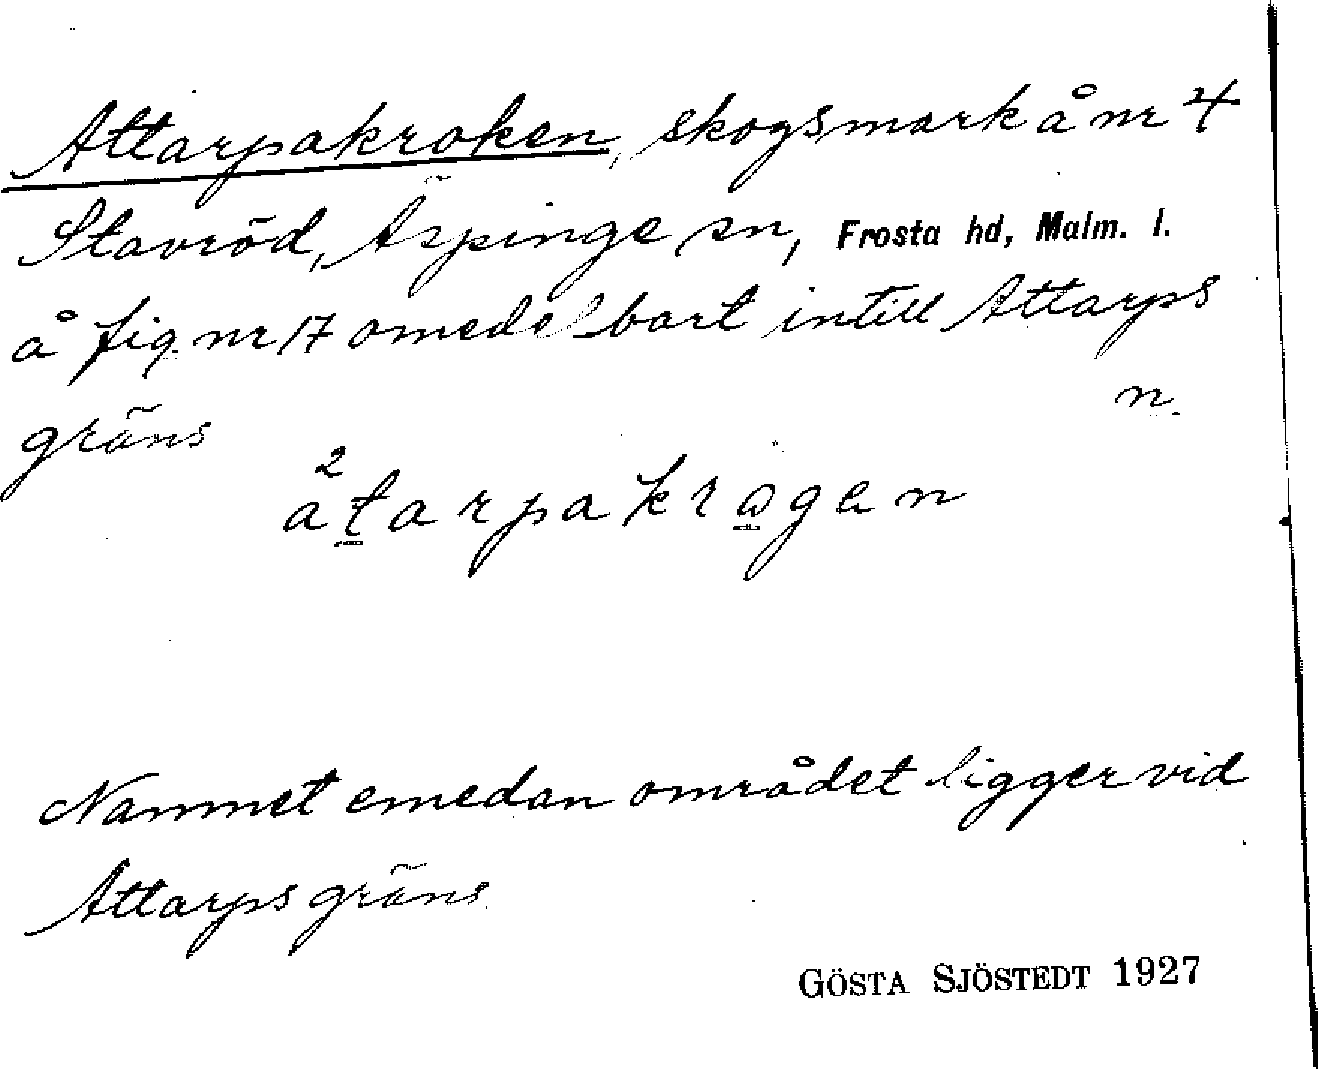 Attarpakroken, skogsmark å nr 4
Stavröd, Äspinge sn, Frosta hd, Malm. l.
å fig. nr 17 omedelbart intill Attarps
gräns n.
2
åtarpakrågen
Namnet emedan området ligger vid
Attarps gräns
GÖSTA SJÖSTEDT 1927